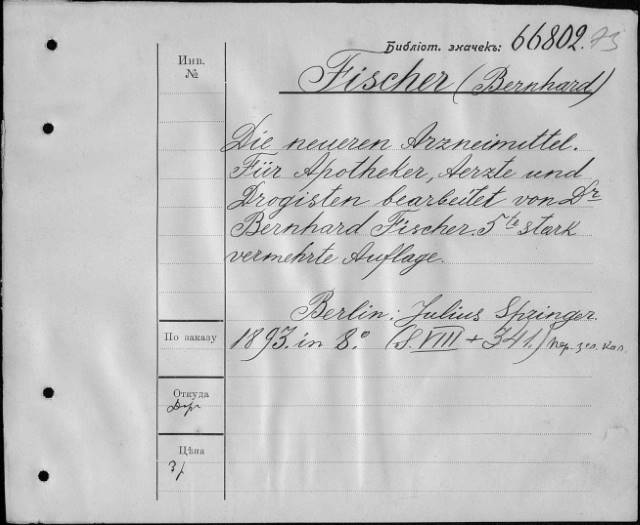 Библіот. значекъ: 66802.
Инв.
№
Fischer (Bernhard)
Die neueren Arzneimittel.
Für Apotheker, Aerzte und
Drogisten bearbeitet von Dr
Bernhard Fischer. 5te stark
vermehrte Auflage.
Berlin: Julius Springer.
По заказу
1893. in 8.° (S. VIII + 341.)
Откуда
Цѣна